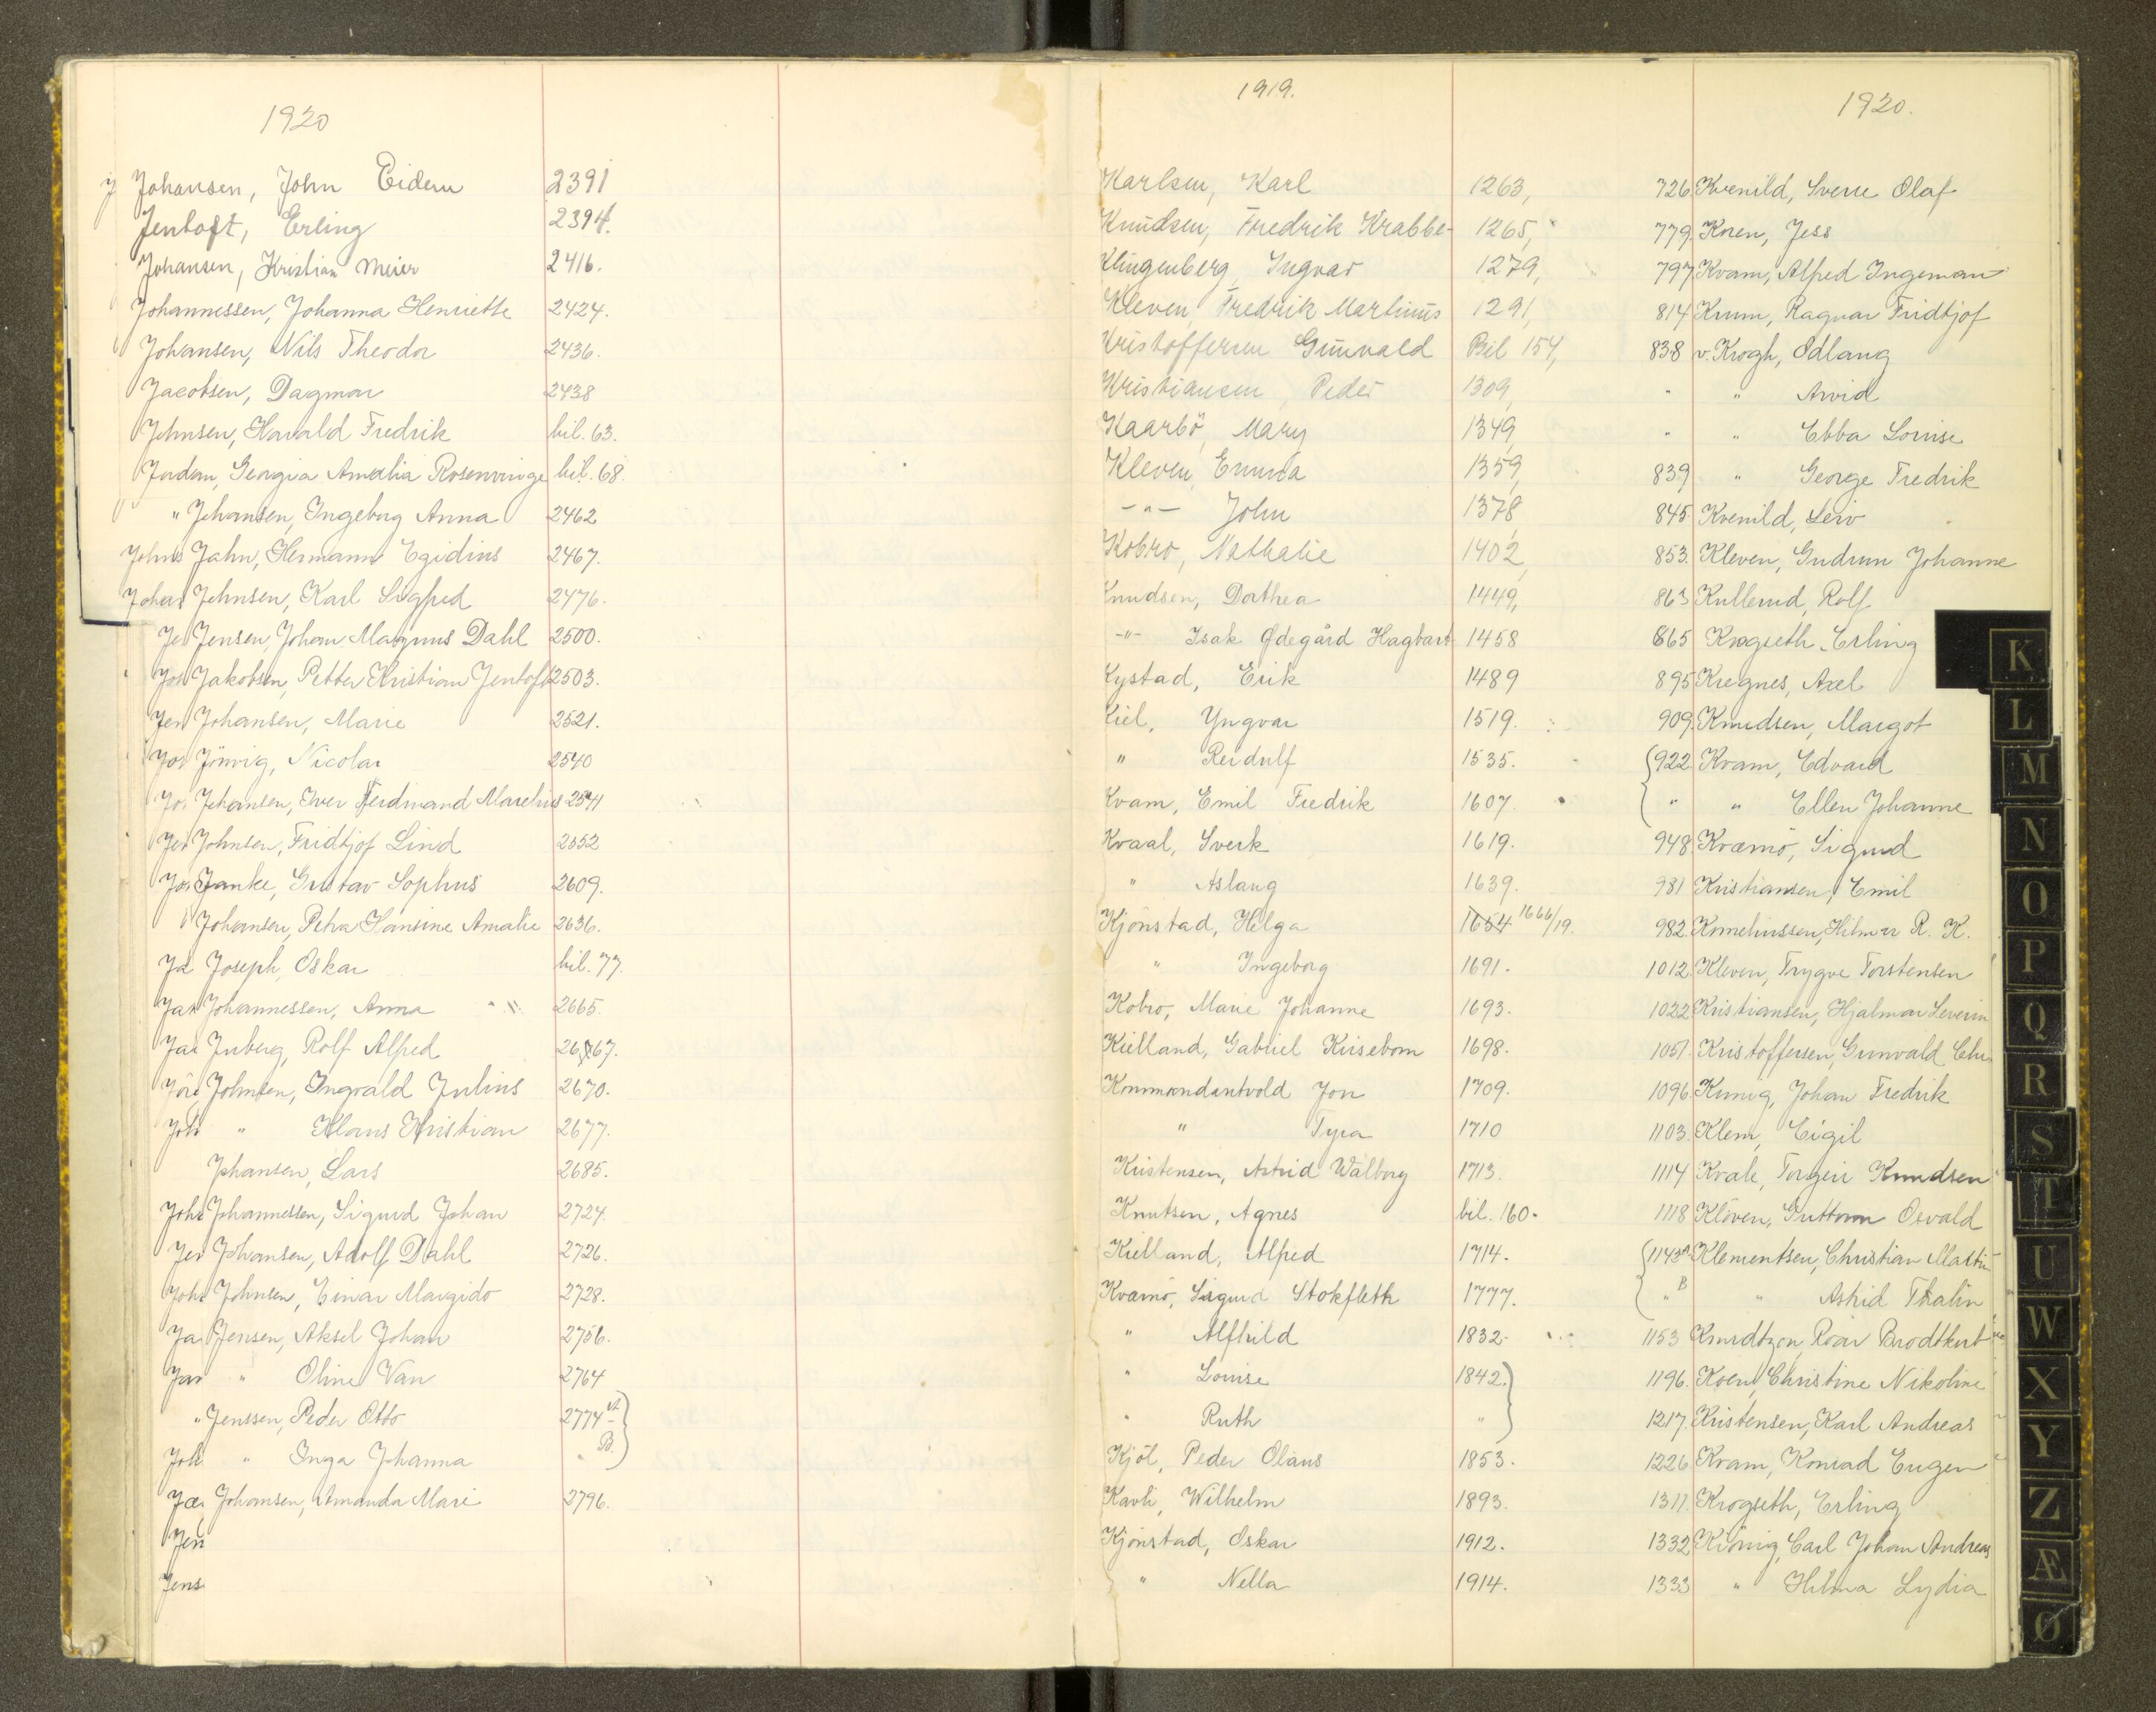 1920
Johansen, John Eidem 2391
Jentoft, Erling 2394.
Johansen, Kristian Meier 2416.
Johannessen, Johanna Henriette 2424.
Johansen, Nils Theodor 2436.
Jacobsen, Dagmar 2438
Johnsen, Harald Fredrik bil. 63.
Jordan, Georgia Amalia Rosenvinge bil. 68.
" Johansen, Ingeborg Anna 2462
Jahn, Hermann Egidius 2467.
Johnsen, Karl Sigfred 2476.
Jensen, Johan Magnus Dahl 2500.
Jakobsen, Petter Kristian Jentoft 2503.
Johansen, Marie 2521.
Jönvig, Nicolai 2540
Johansen, Iver Ferdinand Marelius 2541
Johnsen, Fridtjof Lind 2552
Janke, Gustav Sophus 2609.
Johansen, Petra Hansine Amalie 2636.
Joseph, Oskar bil. 77.
Johannessen, Anna 2665.
Juberg, Rolf Alfred 2667.
Johnsen, Ingvald Julius 2670.
" Klaus Kristian 2677.
Johansen, Lars 2685.
Johannessen, Sigurd Johan 2724.
Johansen, Adolf Dahl 2726.
Johnsen, Einar Margido 2728.
Jensen, Aksel Johan 2756.
" Oline Van 2764
" Jenssen, Peder Otto 2774 A
" Inga Johanna " B.
Johansen, Amanda Mari 2796.
Jen
Jens
1919.
Karlsen, Karl 1263,
Knudsen, Fredrik Krabbe- 1265,
Klingenberg, Ingvar 1279,
Kleven, Fredrik Martinus 1291,
Kristoffersen Gunvald Bil 154,
Kristiansen, Peder 1309,
Kaarbö, Mary 1349,
Kleven, Emma 1359,
-"- John 1378,
Kobro, Nathalie 1402,
Knudsen, Dorthea 1449,
-"- Isak Ødegård Hagbart 1458
Kystad, Erik 1489
Kiel, Yngvar 1519.
" Reidulf 1535.
Kvam, Emil Fredrik 1607.
Kvaal, Sverk 1619.
" Aslaug 1639.
Kjönstad, Helga 1654 1666/19.
" Ingeborg 1691.
Kobro, Marie Johanne 1693.
Kielland, Gabriel Kirsebom 1698.
Kommandantvold Jon 1709.
" Tyra 1710
Kristensen, Astrid Walborg 1713.
Knutsen, Agnes bil. 160.
Kielland, Alfred 1714.
Kvamö, Sigurd Stokfleth 1777.
" Alfhild 1832.
" Louise 1842.
" Ruth "
Kjöl, Peder Olaus 1853.
Kavli, Wilhelm 1893.
Kjönstad, Oskar 1912.
" Nella 1914.
1920.
726 Kvenild, Sverre Olaf
779. Knen, Jess
797 Kvam, Alfred Ingeman
814 Krum, Ragnar Fridtjof
838 v. Krogh, Odlaug
" " Arvid
" " Ebba Louise
839 " George Fredrik
845 Kvenild, Leiv
853. Kleven, Gudrun Johanne
863 Kullerud, Rolf
865 Krogseth, Erling
895 Kregnes, Axel
909. Knudsen, Margot
922 Kvam, Edvard
" " Ellen Johanne
948 Kvamö, Sigurd
981 Kristiansen, Emil
982. Kornelinssen, Hilmar R. K.
1012. Kleven, Trygve Torstensen
1022 Kristiansen, Hjalmar Severin
1051. Kristoffersen, Gunvald Chr.
1096. Kunig, Johan Fredrik
1103. Klem, Eigil
1114 Kvale, Torgeir Knudsen
1118 Klöven, Guttorm Osvald
1143 A Klementsen, Christian Martin
" B " Astrid Thalin
1153 Knudtzon, Roar Brodtkorb
1196. Koen, Christine Nikoline
1217. Kristensen, Karl Andreas
1226 Kvam, Konrad Eugen
1311. Krogseth, Erling
1332 König, Carl Johan Andreas
1333 " Hilma Lydia
K
L
M
N
O
P
Q
R
S
T
U
W
X
Y
Z
Æ
Ø